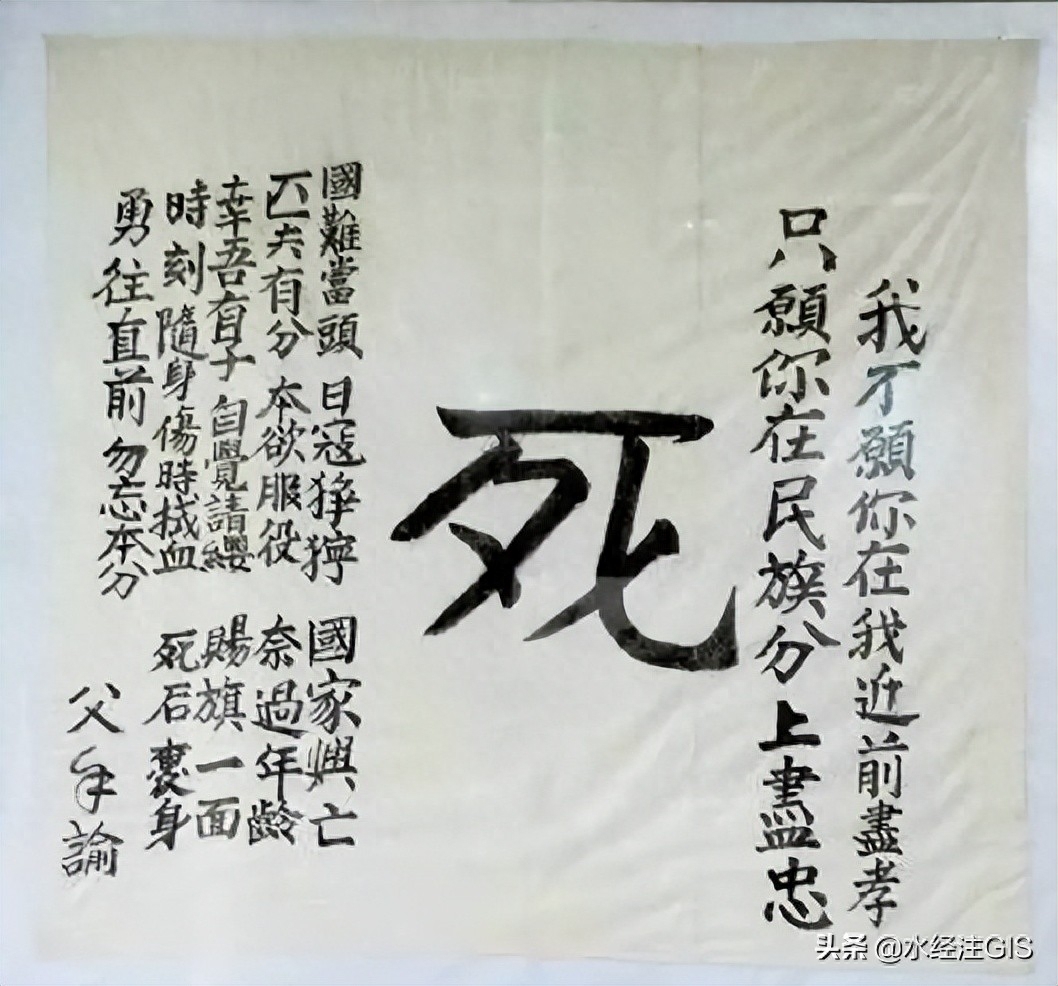 我不願你在我近前盡孝
只願你在民族分上盡忠
死
國難當頭 日寇猙獰 國家興亡
匹夫有分 本欲服役 奈過年齡
幸吾有子 自覺請纓 賜旗一面
時刻隨身 傷時拭血 死后裹身
勇往直前 勿忘本分
父手諭
头条 @水经注GIS